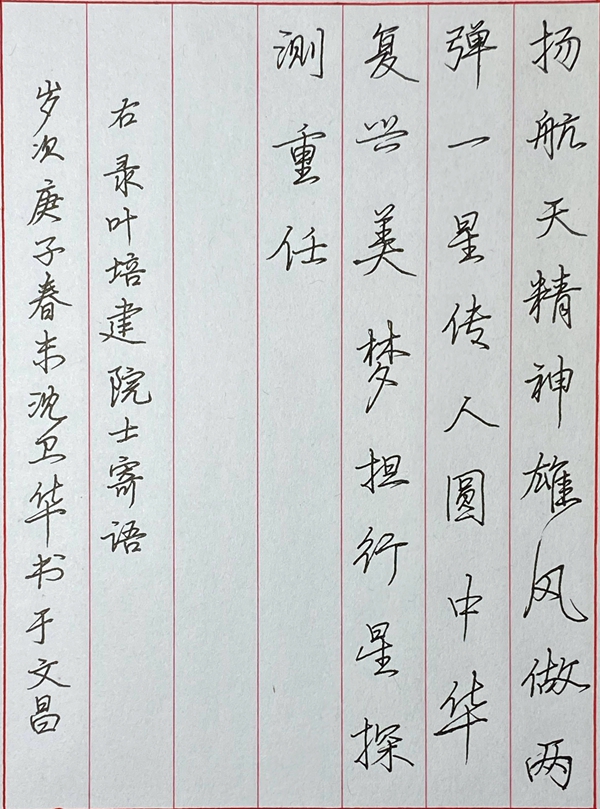 扬航天精神雄风做两
弹一星传人圆中华
复兴美梦担行星探
测重任
右录叶培建院士寄语
岁次庚子春末沈卫华书于文昌